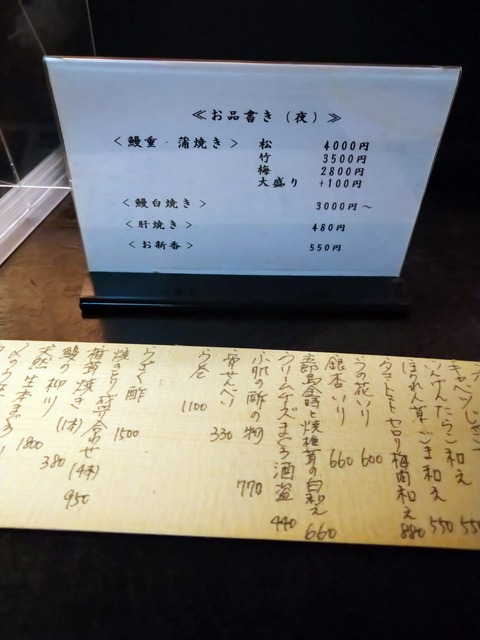 ≪お品書き（夜）≫
＜鰻重・蒲焼き＞ 松 4000円
竹 3500円
梅 2800円
大盛り +100円
＜鰻白焼き＞ 3000円～
＜肝焼き＞ 480円
＜お新香＞ 550円
キャベツじゃこ 550
いんげんたらこ和え 550
ほうれん草ごま和え
トマトとセロリ梅肉和え 880
うの花いり 600
銀杏いり 660
五郎島金時と焼椎茸の白和え 660
クリームチーズまぐろ酒盗 440
小肌の酢の物 770
骨せんべい 330
う巻 1100
うざく酢 1500
焼きとり盛り合わせ(4本) 950
椎茸焼き(1本) 380
鰻の柳川 1800
天然生本まぐろ